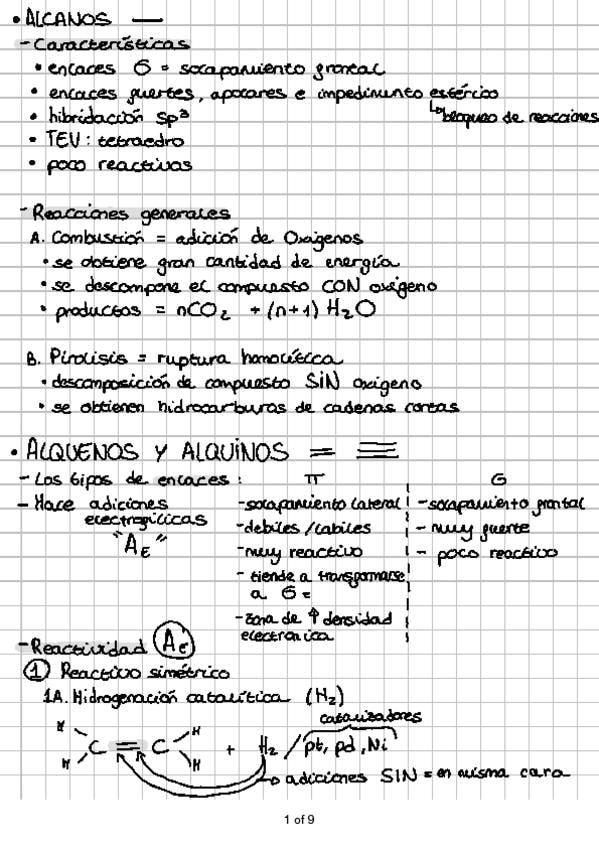 • ALCANOS —
- Características
• enlaces σ = solapamiento frontal
• enlaces fuertes, apolares e impedimento estérico
↳ bloqueo de reacciones
• hibridación sp³
• TEV: tetraedro
• poco reactivos
- Reacciones generales
A. Combustión = adición de Oxígenos
• se obtiene gran cantidad de energía
• se descompone el compuesto CON oxígeno
• productos = nCO₂ + (n+1) H₂O
B. Pirolisis = ruptura homolítica
• descomposición de compuesto SIN oxígeno
• se obtienen hidrocarburos de cadenas cortas
• ALQUENOS Y ALQUINOS = ≡
- Los tipos de enlaces: π σ
- Hace adiciones electrofílicas "AE"
- solapamiento lateral
- debiles / labiles
- muy reactivo
- tiende a transformarse a σ =
- zona de ↑ densidad electronica
- solapamiento frontal
- muy fuerte
- poco reactivo
- Reactividad AE
① Reactivo simétrico
1A. Hidrogenación catalítica (H₂)
catalizadores
H H C = C H H + H₂ / pt, pd, Ni
→ adiciones SIN = en misma cara
1 of 9